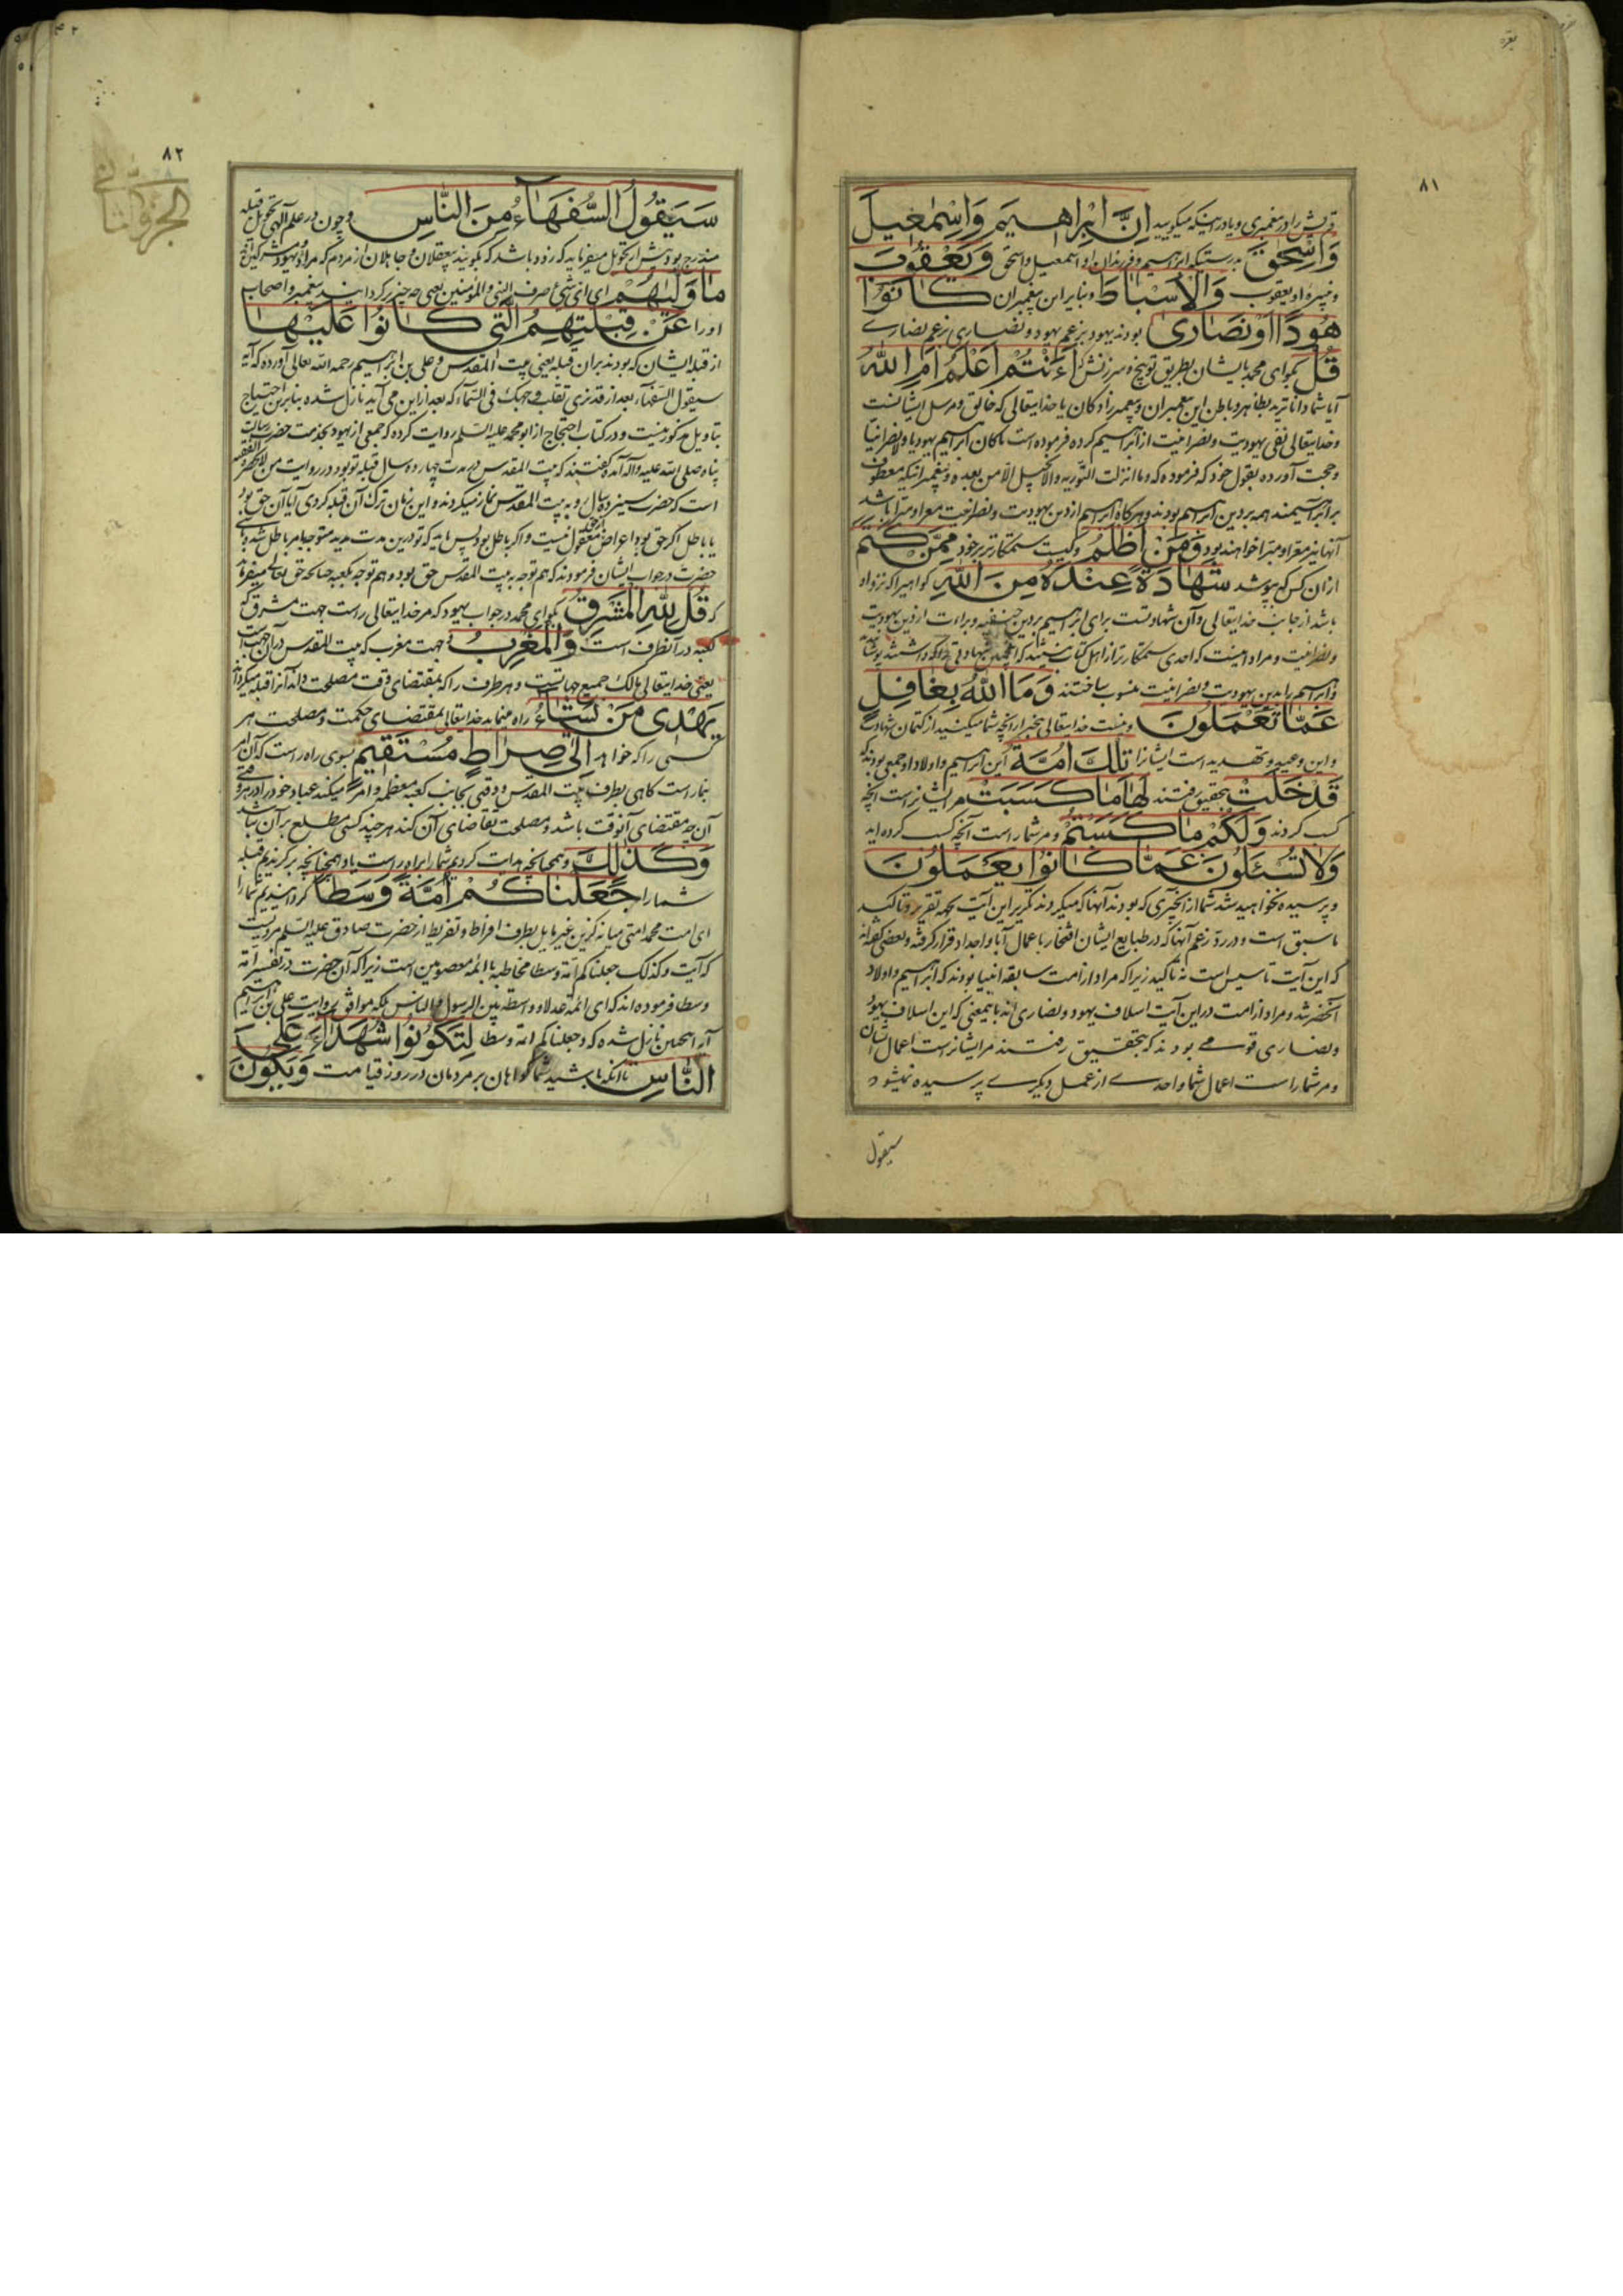 بقره
٨١
قریش را در پیغمبری و یا در اینکه میگویید اِنَّ اِبْرٰاهیمَ وَاِسْمٰعیلَ
وَاِسْحٰقَ بدرستیکه ابراهیم و فرزندان او اسمعیل و اسحق وَیَعْقُوبَ
و نبیره او یعقوب وَالْاَسْبٰاطَ و بنابر این پیغمبران کٰانُوٓا
هُودًا اَوْنَصٰارىٰ بودند یهود بزعم یهود و نصاری بزعم نصاری
قُلْ بگو ای محمد با ایشان بطریق توبیخ و سرزنش که ءَاَنْتُمْ اَعْلَمُ اَمِ اللّٰهُ
آیا شما داناترید بظاهر و باطن این پیغمبران و پیغمبرزادگان یا خدایتعالی که خالق و مرسل ایشانست
و خدایتعالی نفی یهودیت و نصرانیت از ابراهیم کرده فرموده است ماکان ابراهیم یهودیا ولانصرانیا
و حجت آورده بقول خود که فرموده که وما انزلت التوریه والانجیل الا من بعده و پیغمبرانیکه معطوف
بر ابراهیمند همه بر دین ابراهیم بودند و هرگاه ابراهیم از دین یهودیت و نصرانیت معرا و مبرا باشد
آنها نیز معرا و مبرا خواهند بود وَمَنْ اَظْلَمُ و کیست ستمکارتر بر خود مِمَّنْ کَتَمَ
از آن کس که بپوشد شَهٰادَةً عِنْدَهُ مِنَ اللّٰهِ گواهیرا که نزد او
باشد از جانب خدایتعالی و آن شهادتست برای ابراهیم بر دین حنیفیه و براءت از دین یهودیت
و نصرانیت و مراد اینست که احدی ستمکارتر از اهل کتاب نیستند که
و ابراهیم را بدین یهودیت و نصرانیت منسوب ساختند وَمَا اللّٰهُ بِغٰافِلٍ
عَمّٰا تَعْمَلُونَ و نیست خدایتعالی بیخبر از آنچه شما میکنید از کتمان شهادت
و این وعید و تهدید است ایشانرا تِلْكَ اُمَّةٌ این ابراهیم و اولاد او جمعی بودند که
قَدْ خَلَتْ بتحقیق رفتند لَهٰا مٰا کَسَبَتْ مر ایشانراست آنچه
کسب کردند وَلَکُمْ مٰا کَسَبْتُمْ و مر شما راست آنچه کسب کرده اید
وَلٰا تُسْئَلُونَ عَمّٰا کٰانُوا یَعْمَلُونَ
و پرسیده نخواهید شد شما از آنچیزی که بودند آنها که میکردند تکریر این آیت بجهة تقریر و تاکید
ماسبق است و در رد زعم آنها که در طبایع ایشان افتخار باعمال آبا و اجداد قرار گرفته و بعضی گفته اند
که این آیت تاسیس است نه تاکید زیرا که مراد از امت سابقه انبیا بودند که ابراهیم و اولاد
آنحضرتند و مراد از امت در این آیت اسلاف یهود و نصاری اند باینمعنی که این اسلاف یهود
و نصاری قومی بودند که بتحقیق رفتند مر ایشانراست اعمال ایشان
و مر شما راست اعمال شما و احدی از عمل دیگری پرسیده نمیشود
سیقول
٨٢
الجزو الثانی
سَیَقُولُ السُّفَهٰآءُ مِنَ النّٰاسِ و چون در علم الهی تحویل قبله
مندرج بود پیش از تحویل میفرماید که زود باشد که بگویند بیعقلان و جاهلان از مردم که مراد یهود و مشرکین
مٰا وَلّٰیهُمْ ای ای شئ صرف النبی والمؤمنین یعنی چه چیز گردانید پیغمبر و اصحاب
او را عَنْ قِبْلَتِهِمُ الَّتی کٰانُوا عَلَیْهٰا
از قبله ایشان که بودند بر آن قبله یعنی بیت المقدس و علی بن ابراهیم رحمه الله تعالی آورده که آیه
سیقول السفهاء بعد از قد نری تقلب وجهك فی السماء که بعد از این می آید نازل شده بنابراین احتیاج
بتاویل مذکور نیست و در کتاب احتجاج از ابو محمد علیه السلم روایت کرده که جمعی از یهود بخدمت حضرت رسالت
پناه صلی الله علیه و اله آمده گفتند که بیت المقدس در مدت چهارده سال قبله تو بود و در روایت من لایحضره الفقیه
است که حضرت سیزده سال رو به بیت المقدس نماز میکردند و این زمان ترك آن قبله کردی آیا آن حق بود
یا باطل اگر حق بود اعراض از حق معقول نیست و اگر باطل بود پس باید که تو در این مدت مدید متوجه امر باطل شده باشی
حضرت در جواب ایشان فرمودند که هم توجه به بیت المقدس حق بود و هم توجه بکعبه چنانچه حق تعالی میفرماید
که قُلْ لِلّٰهِ الْمَشْرِقُ بگو ای محمد در جواب یهود که مر خدایتعالی راست جهت مشرق که
کعبه در آنطرف است وَالْمَغْرِبُ و جهت مغرب که بیت المقدس در آن جهت است
یعنی خدایتعالی مالك جمیع جهاتست و هر طرف را که بمقتضای وقت مصلحت داند آنرا قبله میگرداند
یَهْدی مَنْ یَشٰآءُ راه مینماید خدایتعالی بمقتضای حکمت و مصلحت هر
کسی را که خواهد اِلىٰ صِرٰاطٍ مُسْتَقیمٍ بسوی راه راست که آن امر
بنماز است گاهی بطرف بیت المقدس و وقتی بجانب کعبه معظمه و امر میکند عباد خود را در هر وقتی
آن چه مقتضای آنوقت باشد و مصلحت تقاضای آن کند هر چند کسی مطلع بر آن نباشد
وَکَذٰلِكَ و همچنانچه هدایت کردیم شما را براه راست یا همچنانچه برگزیدیم قبله
شما را جَعَلْنٰاکُمْ اُمَّةً وَسَطًا گردانیدیم شما را
ای امت محمد امتی میانه گزین غیر مایل بطرف افراط و تفریط از حضرت صادق علیه السلم مرویست
که آیت وکذلك جعلناکم امة وسطا مخاطبه با ائمه معصومین است زیرا که آن حضرت در تفسیر امة
وسطا فرموده اند که ای ائمة عدلا و واسطة بین الرسول والناس بلکه موافق روایت علی بن ابراهیم
آیه اینچنین نازل شده که وجعلناکم ائمة وسطا لِتَکُونُوا شُهَدٰآءَ عَلَى
النّٰاسِ تا آنکه باشید شما گواهان بر مردمان در روز قیامت وَیَکُونَ